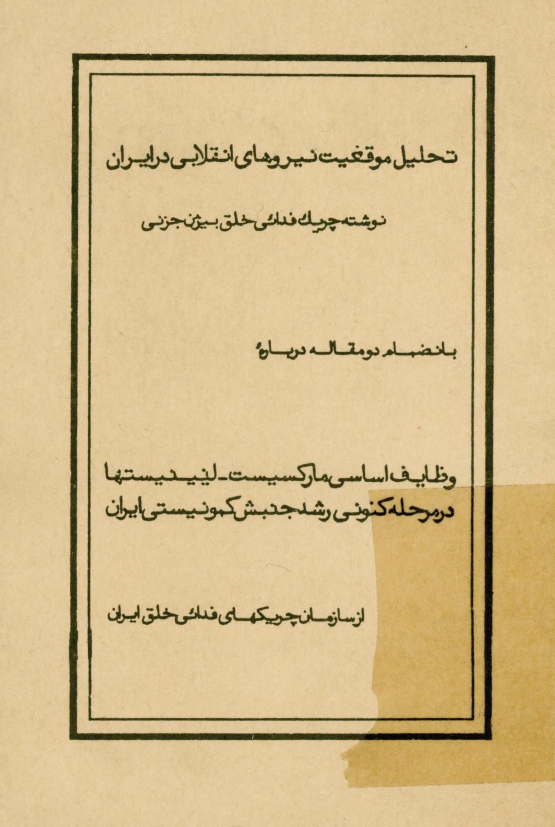 تحلیل موقعیت نیروهای انقلابی در ایران
نوشته چریك فدائی خلق بیژن جزنی
بانضمام دو مقاله دربارهٔ
وظایف اساسی مارکسیست - لنینیستها
در مرحله کنونی رشد جنبش کمونیستی ایران
از سازمان چریکهای فدائی خلق ایران